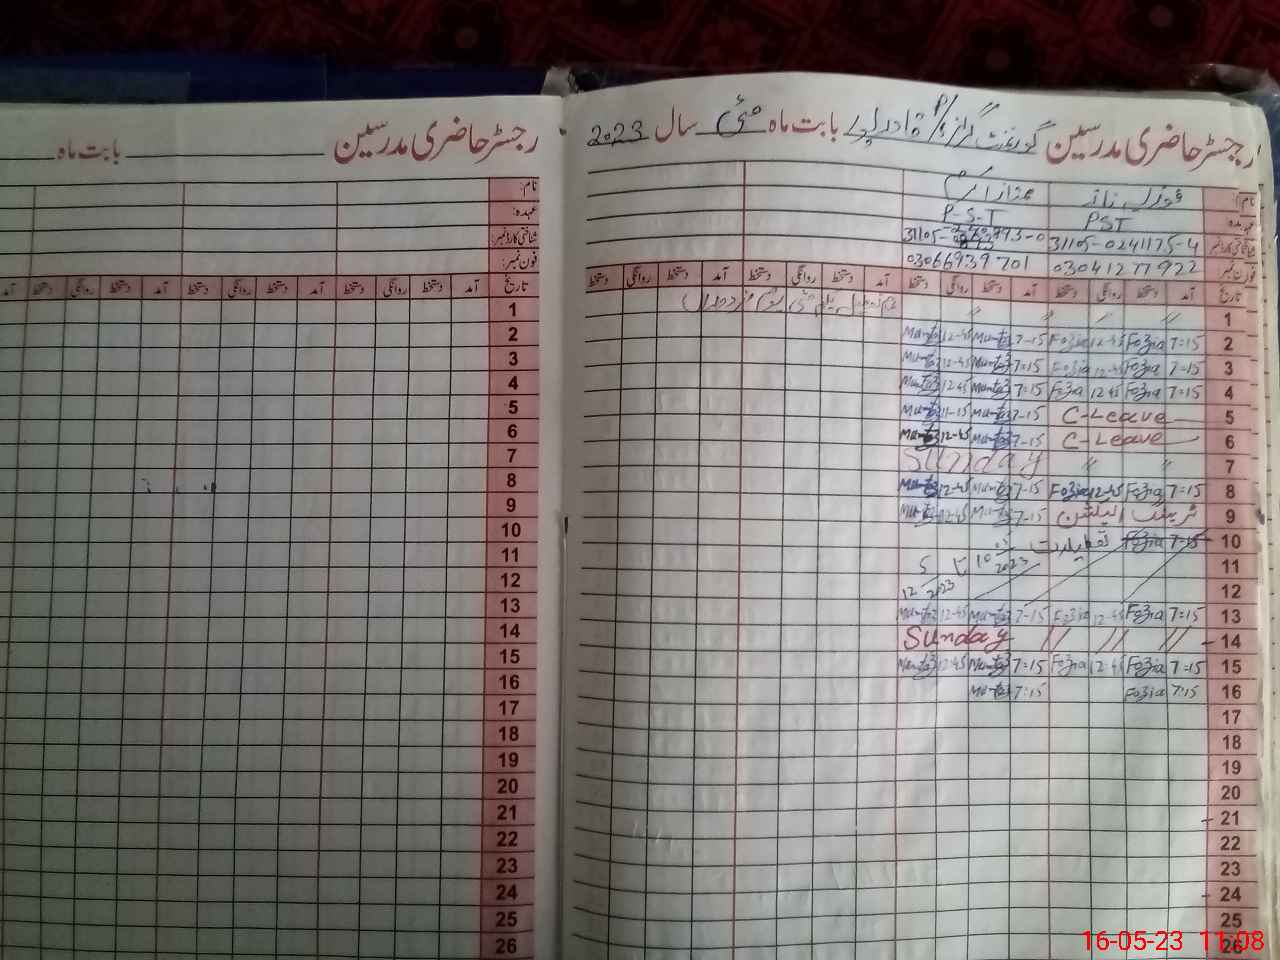 رجسٹر حاضری مدرسین گورنمنٹ گرلز P/S قادر پور بابت ماہ مئی سال 2023
نام: فوزیہ ناز ممتاز اکرم
عہدہ: PST P-S-T
شناختی کارڈ نمبر: 31105-0241175-4
فون نمبر: 03041277922 03066939701
تاریخ آمد دستخط روانگی دستخط آمد دستخط روانگی دستخط آمد دستخط روانگی دستخط آمد دستخط روانگی دستخط
1 〃 〃 〃 〃 یکم مئی یوم مزدوراں
2 7:15 Fozia 12-45 Fozia 7-15 Mumtaz 12-45 Mumtaz
3 7:15 Fozia 12-45 Fozia 7:15 Mumtaz 12-45 Mumtaz
4 7:15 Fozia 12 45 Fozia 7:15 Mumtaz 12 45 Mumtaz
5 C-Leave 7-15 Mumtaz 11-15 Mumtaz
6 C-Leave 7-15 Mumtaz 12-45 Mumtaz
7 〃 〃 Sunday
8 7:15 Fozia 12-45 Fozia 7-15 Mumtaz 12-45 Mumtaz
9 ٹریننگ الیکشن 7-15 Mumtaz 12-45 Mumtaz
10 7:15 Fozia تعطیلات 10 05 2023 تا
11
12 12 5 2023
13 7:15 Fozia 12-45 Fozia 7-15 Mumtaz 12-45 Mumtaz
14 〃 〃 〃 Sunday
15 7:15 Fozia 12-45 Fozia 7:15 Mumtaz 12-45 Mumtaz
16 7:15 Fozia 7:15 Mumtaz
17
18
19
20
21
22
23
24
25
26
رجسٹر حاضری مدرسین بابت ماہ
نام:
عہدہ:
شناختی کارڈ نمبر:
فون نمبر:
تاریخ آمد دستخط روانگی دستخط آمد دستخط روانگی دستخط آمد دستخط روانگی دستخط آمد
1
2
3
4
5
6
7
8
9
10
11
12
13
14
15
16
17
18
19
20
21
22
23
24
25
26
16-05-23 11:08